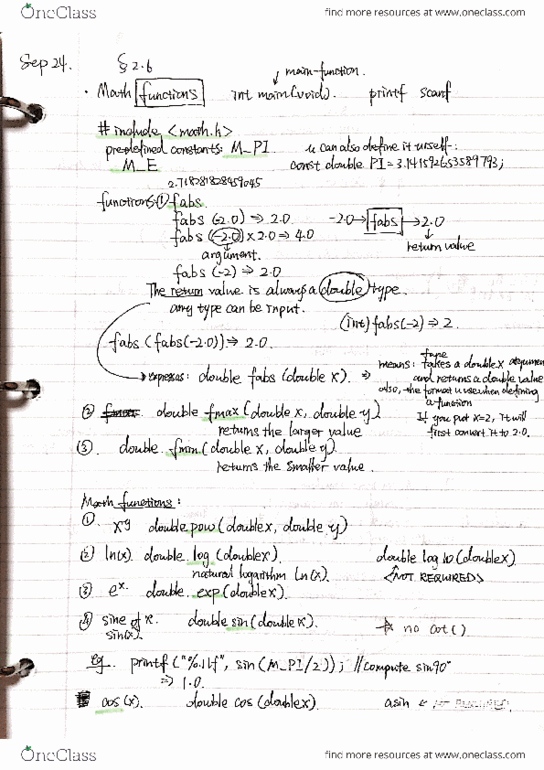 OneClass
find more resources at www.oneclass.com
Sep 24. § 2.6
main-function.
· Math functions int main(void). printf scanf
# include <math.h>
pre-defined constants: M_PI u can also define it urself:
M_E const double PI = 3.141592653589793;
2.718281828459045
functions: ① fabs
fabs (-2.0) ⇒ 2.0 -2.0 → fabs → 2.0
fabs (-2.0) × 2.0 ⇒ 4.0 return value
argument.
fabs (-2) ⇒ 2.0
The return value is always a double type.
any type can be input.
(int) fabs(-2) ⇒ 2.
fabs (fabs(-2.0)) ⇒ 2.0.
→ expresses: double fabs (double x). ⇒ means: takes a double x argument
type
and returns a double value
also, the format u use when defining
a function
If you put x=2, It will
first convert it to 2.0.
② double fmax (double x, double y)
returns the larger value
③. double fmin (double x, double y)
returns the smaller value.
Math functions:
① x^y double pow (double x, double y)
② ln(x). double log (double x). double log 10 (double x)
natural logarithm ln(x). <NOT REQUIRED>
③ e^x. double exp (double x).
④ sine of x. double sin (double x). no cot ( )
sin(x).
eg. printf ("%.1lf", sin (M_PI/2)); // compute sin90°
⇒ 1.0.
cos (x). double cos (double x). asin ←
OneClass
find more resources at www.oneclass.com